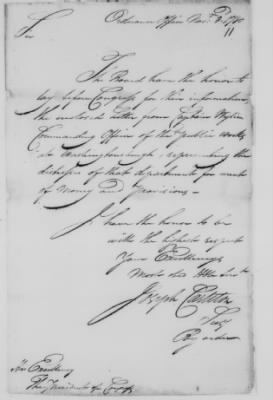 Ordnance Office Nov.
Sir
The Board have the honor to
lay before Congress for their information
the enclosed letter from Captain
Commanding Officer of the public works
at representing the
distress of that department for want
of Money and Provisions -
I have the honor to be
with the highest respect
Your Excellency's
Most obt Hble Servt
Joseph Carleton
Secy
By order
His Excellency
The President of Congress